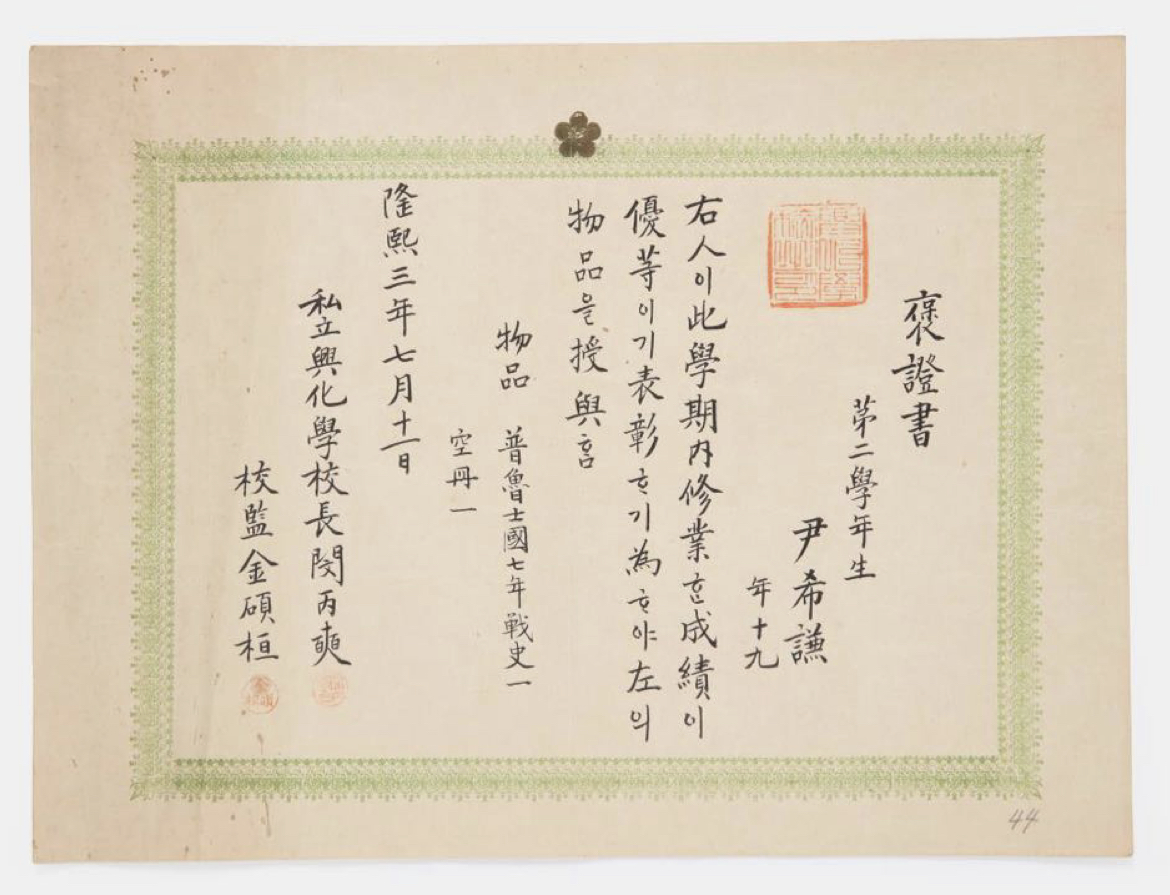 褒證書
第二學年生
尹希謙
年十九
右人이此學期內修業ᄒᆞᆫ成績이
優等이기表彰ᄒᆞ기為ᄒᆞ야左의
物品을授與홈
物品 普魯士國七年戦史一
空冊一
隆熙三年七月十一日
私立興化學校長閔丙奭
校監金碩桓
44